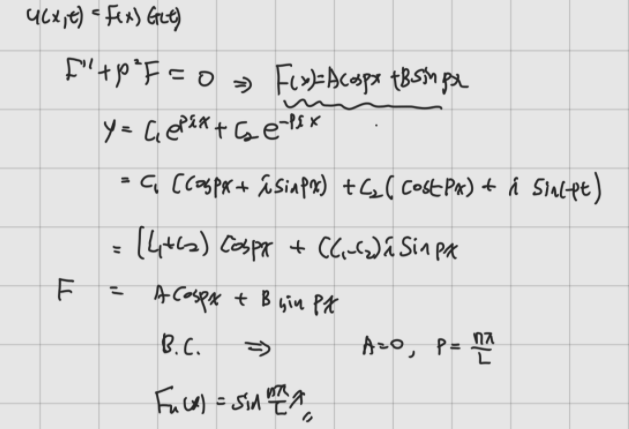 u(x,t) = F(x) G(t)
F'' + p²F = 0 ⇒ F(x)=Acospx +Bsin px
y = C₁e^{pix} + C₂e^{-pix}
= C₁ (cospx + i sinpx) + C₂( cos(-px) + i sin(-pt)
= (C₁+C₂) cospx + (C₁-C₂)i sin px
F = A cospx + B sin px
B.C. ⇒ A=0, P = nπ/L
Fₙ(x) = sin nπ/L x,,